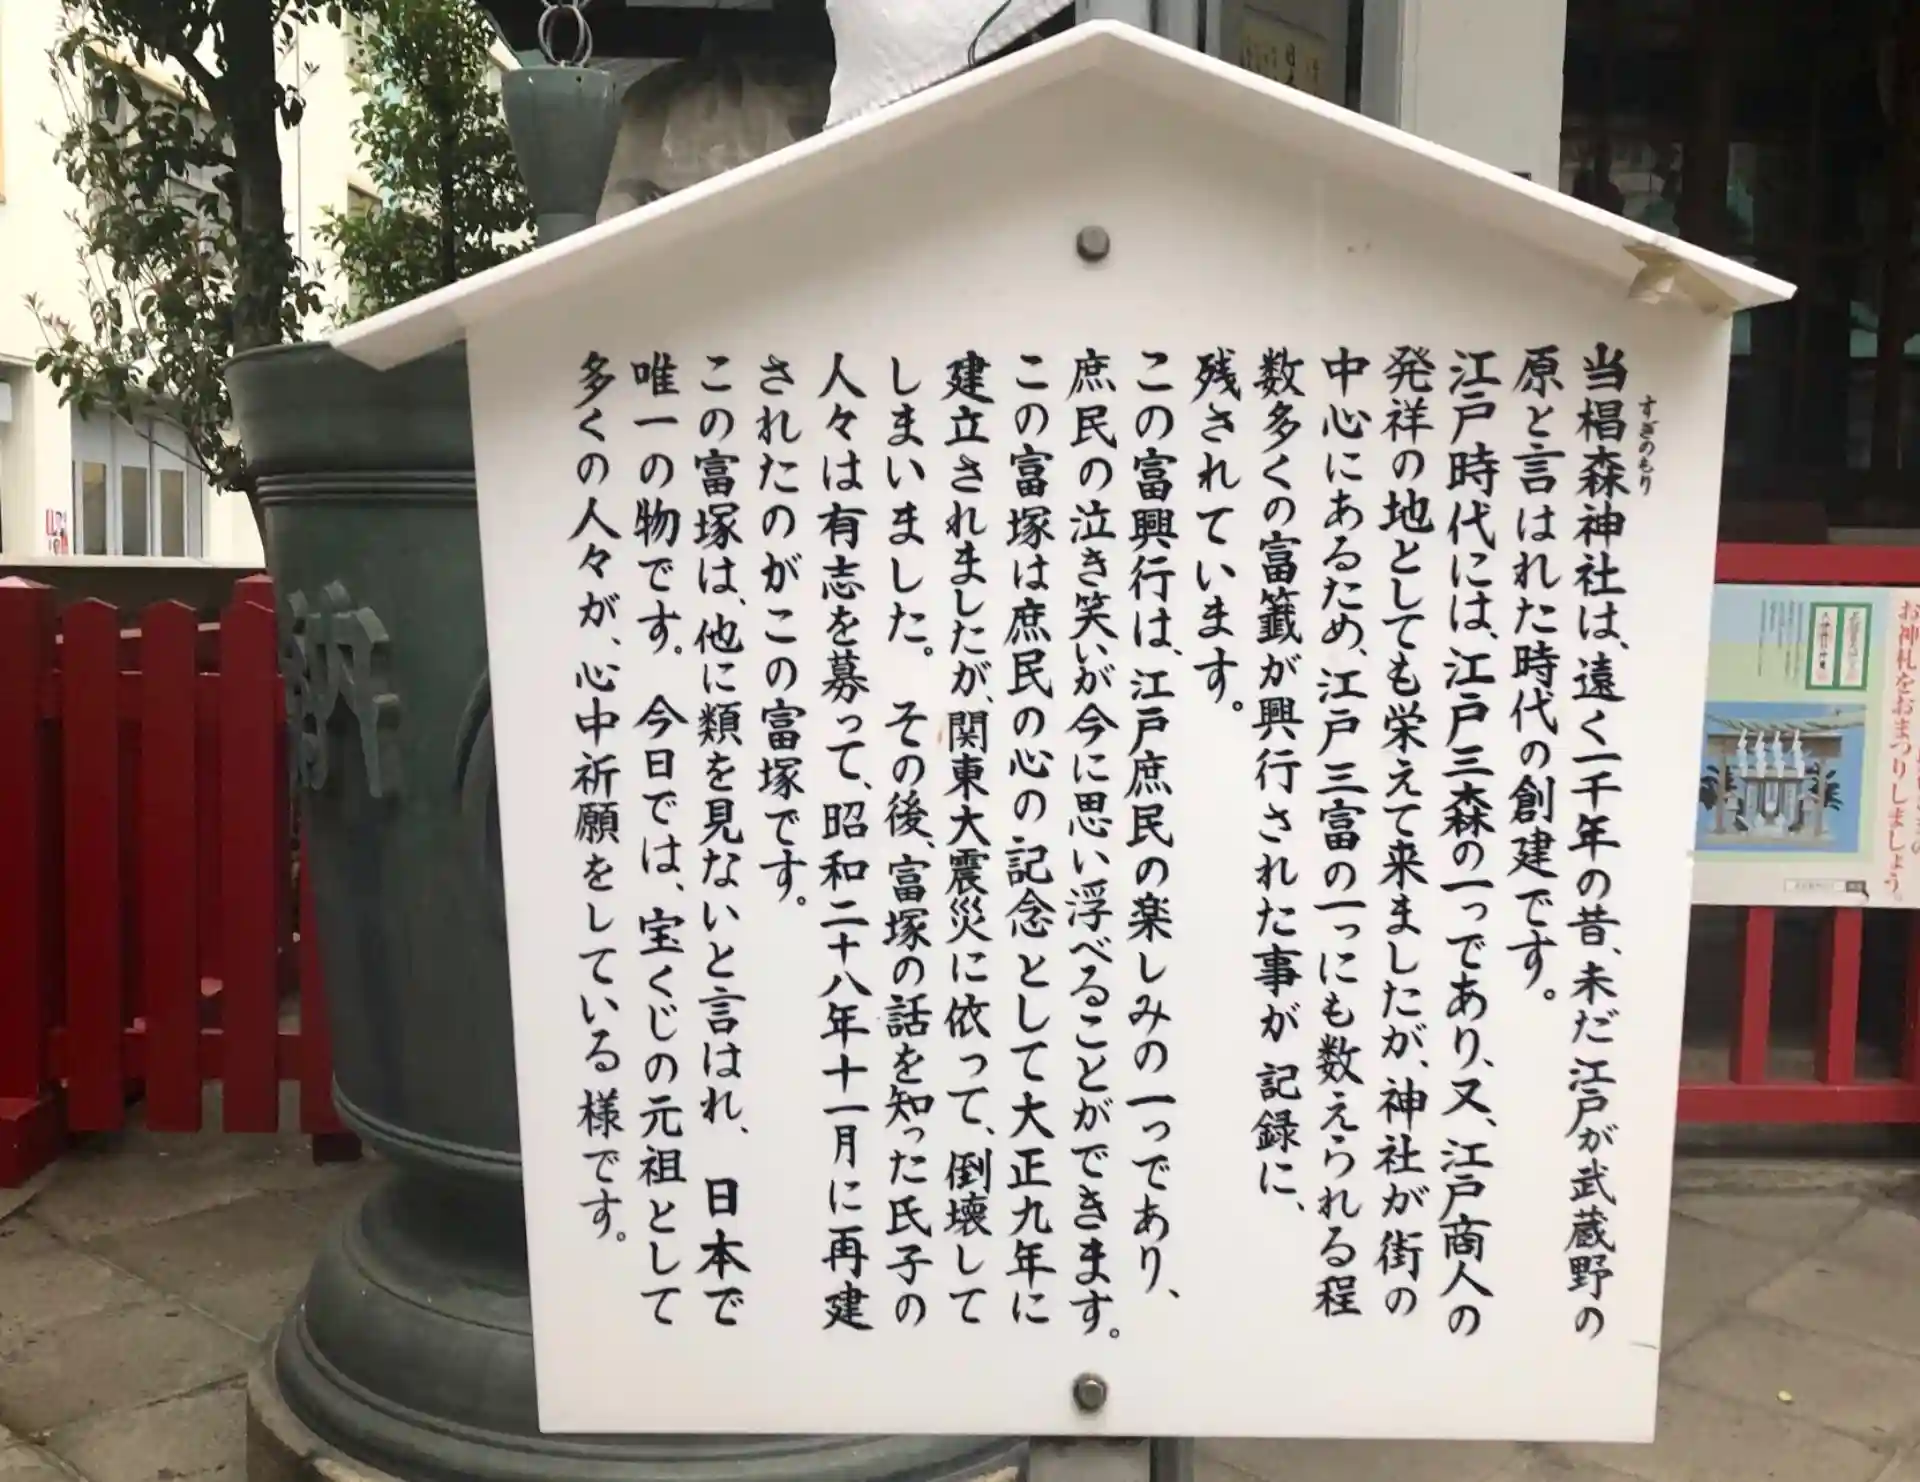 当椙森神社は、遠く一千年の昔、未だ江戸が武蔵野の
すぎのもり
原と言はれた時代の創建です。
江戸時代には、江戸三森の一つであり、又、江戸商人の
発祥の地としても栄えて来ましたが、神社が街の
中心にあるため、江戸三富の一つにも数えられる程
数多くの富籤が興行された事が記録に、
残されています。
この富興行は、江戸庶民の楽しみの一つであり、
庶民の泣き笑いが今に思い浮べることができます。
この富塚は庶民の心の記念として大正九年に
建立されましたが、関東大震災に依って、倒壊して
しまいました。 その後、富塚の話を知った氏子の
人々は有志を募って、昭和二十八年十一月に再建
されたのがこの富塚です。
この富塚は、他に類を見ないと言はれ、 日本で
唯一の物です。 今日では、宝くじの元祖として
多くの人々が、心中祈願をしている様です。
お神札をおまつりしましょう。
納